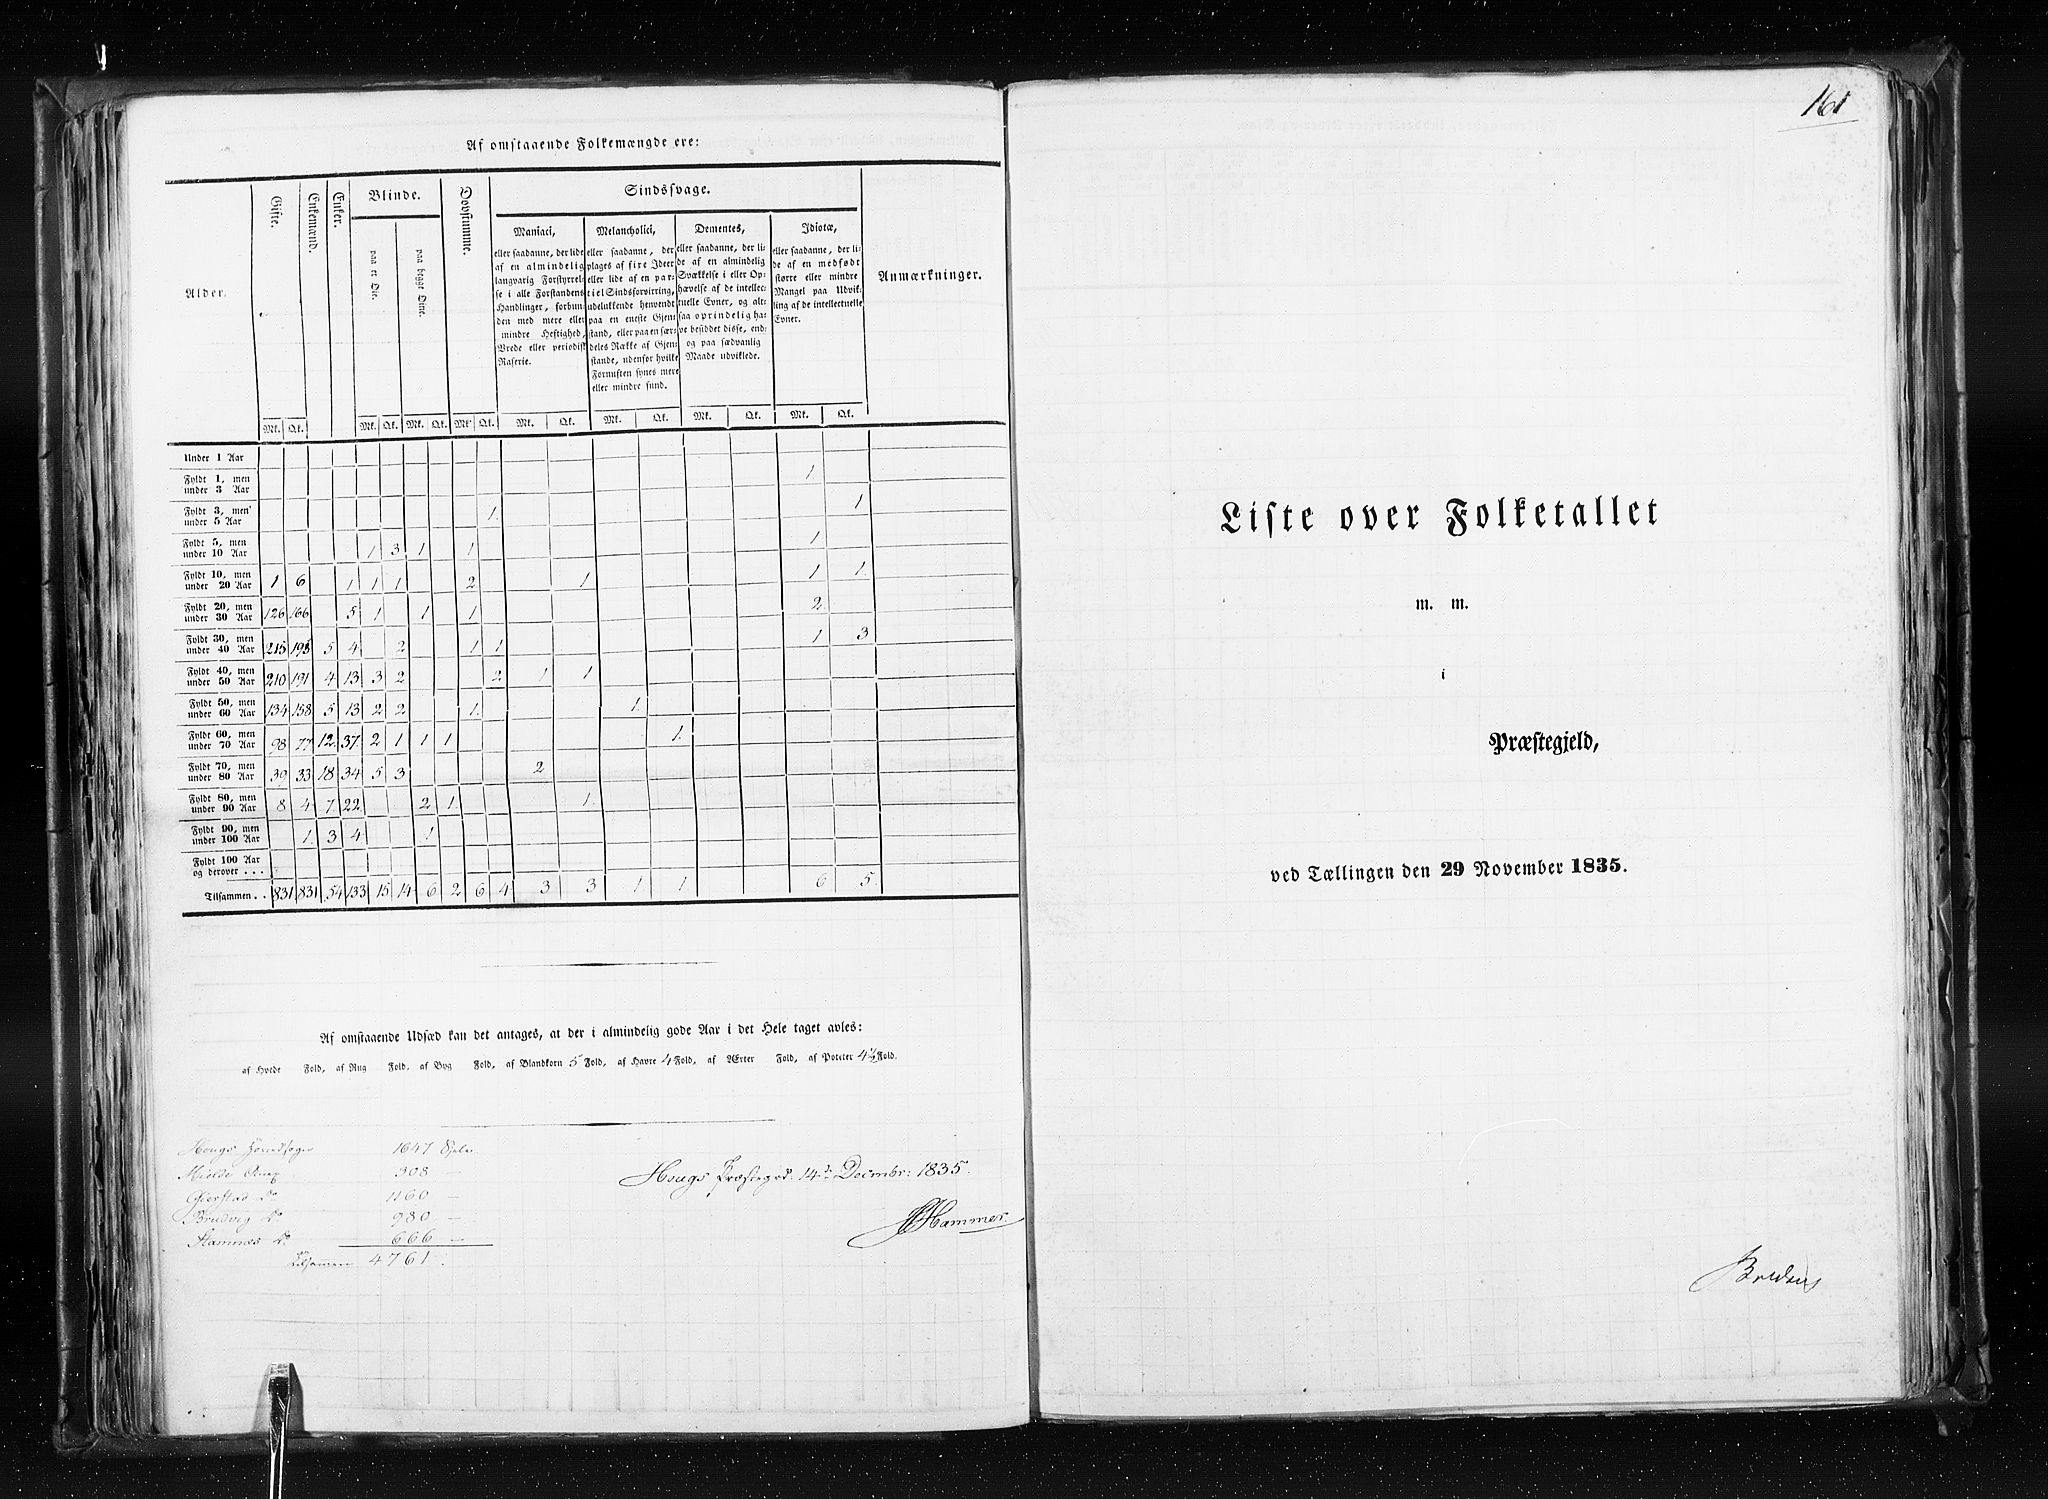 Af omstaaende Folkemængde ere:
Alder.
Gifte.
Enkemænd.
Enker.
Blinde.
paa et Øie.
paa begge Øine.
Døvstumme.
Sindssvage.
Maniaci,
eller saadanne, der lide
af en almindelig
langvarig Forstyrrel-
se i alle Forstandens
Handlinger, forbun-
den med mere eller
mindre Heftighed,
Vrede eller periodisk
Raserie.
Melancholici,
eller saadanne, der
plages af fixe Ideer
eller lide af en par-
tiel Sindsforvirring,
udelukkende henvendt
paa en eneste Gjen-
stand, eller paa en sær-
deles Række af Gjen-
stande, udenfor hvilke
Fornuften synes mere
eller mindre sund.
Dementes,
eller saadanne, der li-
de af en almindelig
Svækkelse i eller Op-
hævelse af de intellec-
tuelle Evner, og alt-
saa oprindelig ha-
ve besiddet disse, end-
og paa sædvanlig
Maade udviklede.
Idiotæ,
eller saadanne, der li-
de af en medfødt
større eller mindre
Mangel paa Udvik-
ling af de intellectuelle
Evner.
Anmærkninger.
Mk. Qk. Mk. Qk. Mk. Qk. Mk. Qk. Mk. Qk. Mk. Qk. Mk. Qk. Mk. Qk.
Under 1 Aar
Fyldt 1, men
under 3 Aar 1
Fyldt 3, men
under 5 Aar 1. 1
Fyldt 5, men
under 10 Aar 1 3 1 1 1
Fyldt 10, men
under 20 Aar 1 6 1 1 1 2 1 1 1.
Fyldt 20, men
under 30 Aar 126 166 5 1 1 1 2.
Fyldt 30, men
under 40 Aar 215 195 5 4 2 1 1 1 3
Fyldt 40, men
under 50 Aar 210 191 4 13 3 2 2 1 1.
Fyldt 50, men
under 60 Aar 134 158 5 13 2 2 1. 1.
Fyldt 60, men
under 70 Aar 98 77 12. 37. 2 1 1 1 1.
Fyldt 70, men
under 80 Aar 39 33 18 34 5 3 2
Fyldt 80, men
under 90 Aar 8 4 7 22 2 1. 1.
Fyldt 90, men
under 100 Aar 1. 3 4 1
Fyldt 100 Aar
og derover . . .
Tilsammen . . 831 831 54 133 15 14 6 2 6 4 3 3 1 1 6 5.
Af omstaaende Udsæd kan det antages, at der i almindelig gode Aar i det Hele taget avles:
af Hvede Fold, af Rug Fold, af Byg Fold, af Blandkorn 5 Fold, af Havre 4 Fold, af Ærter Fold, af Poteter 4½ Fold.
Hougs Hovedsogn 1647 Sjele
Mielde 308 —
Gierstad do 1160 —
Brudvig do 980 —
Stamnæs do 666 —
Tilsamen 4761.
Hougs Præstegrd. 14de Decembr: 1835.
Hammer.
161
Liste over Folketallet
m. m.
i
Præstegjeld,
ved Tællingen den 29 November 1835.